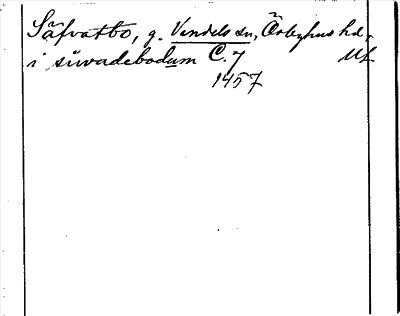 Säfvatbo, g. Vendels sn, Örbyhus hd.,
i siwadebodum C. 7 Ul.
1457